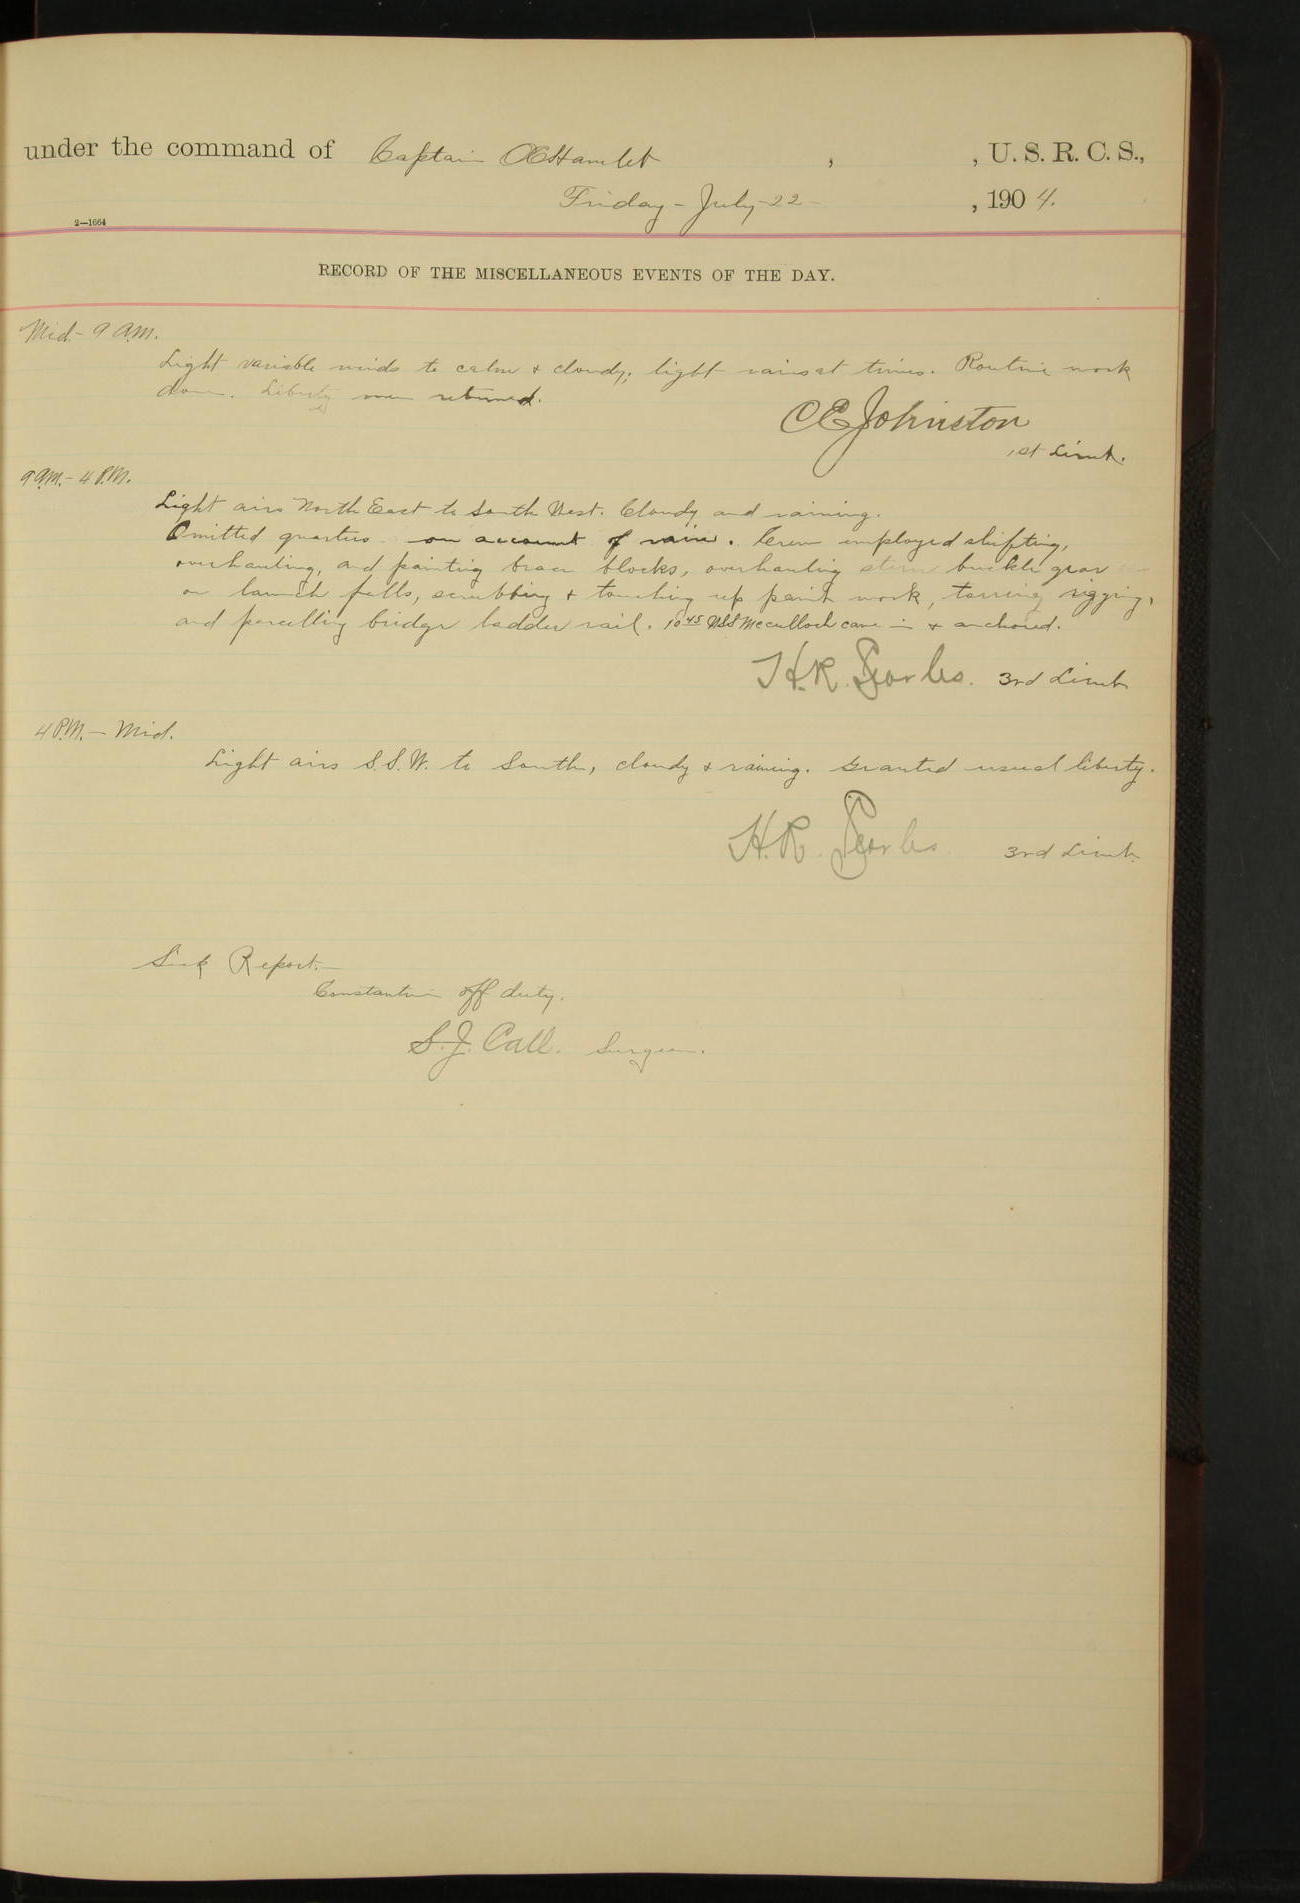 under the command of Captain O C Hamlet , , U. S. R. C. S.,
Friday - July - 22 - , 1904.
2—1664
RECORD OF THE MISCELLANEOUS EVENTS OF THE DAY.
Mid - 9 A.M.
Light variable winds to calm & cloudy, light rains at times. Routine work
done. Liberty men returned.
C E Johnston
1st Lieut.
9 A.M. - 4 P.M.
Light airs North East to South West. Cloudy and raining.
Omitted quarters on account of rain. Crew employed shifting,
overhauling, and painting brace blocks, overhauling stern buckle gear
on launch falls, scrubbing & touching up paint work, tarring rigging,
and parcelling bridge ladder rail. 10 45 McCulloch came in & anchored.
H. R. Searles. 3rd Lieut
4 P.M. - Mid.
Light airs S.S.W. to South, cloudy & raining. Granted usual liberty.
H. R. Searles 3rd Lieut.
Sick Report.
Constantin off duty.
S. J. Call. Surgeon.